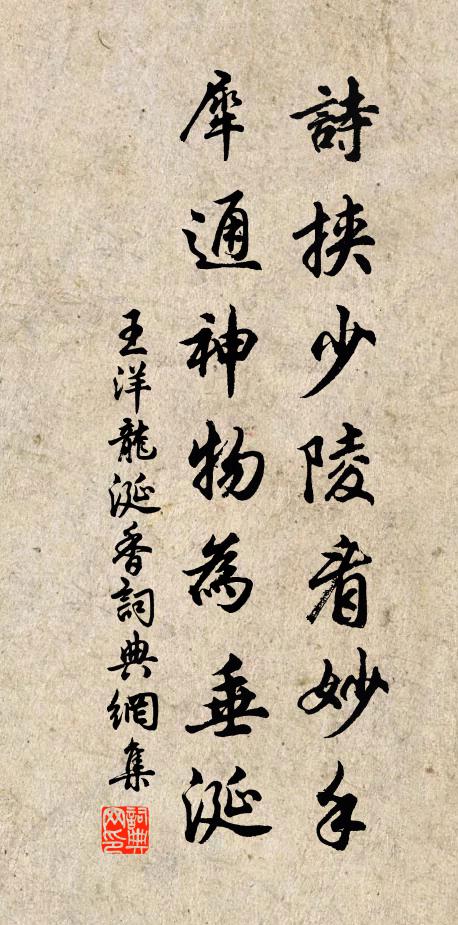 詩挾少陵看妙手
犀通神物為垂涎
王洋龍涎香詞典網集
詞典网印